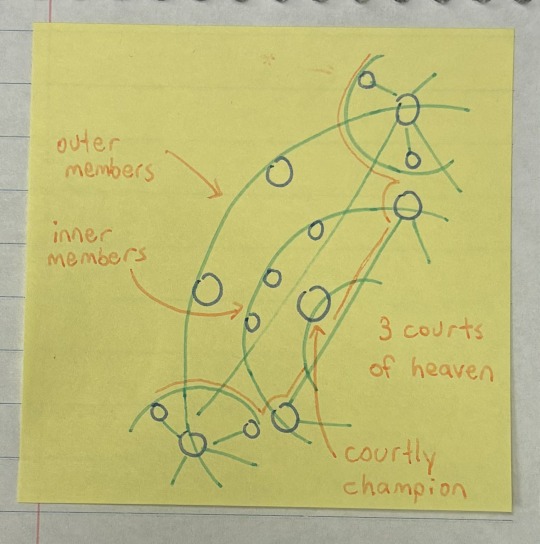 outer
members
inner
members
3 courts
of heaven
courtly
champion